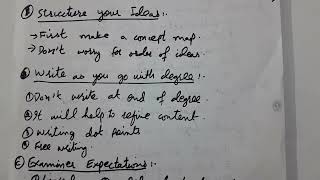 Structure your Ideas:-
→ First make a concept map.
→ Don't worry for order of ideas.
Write as you go with degree:-
① Don't write at end of degree.
② It will help to refine content.
③ Writing dot points
④ Free writing.
Examiner Expectations:-